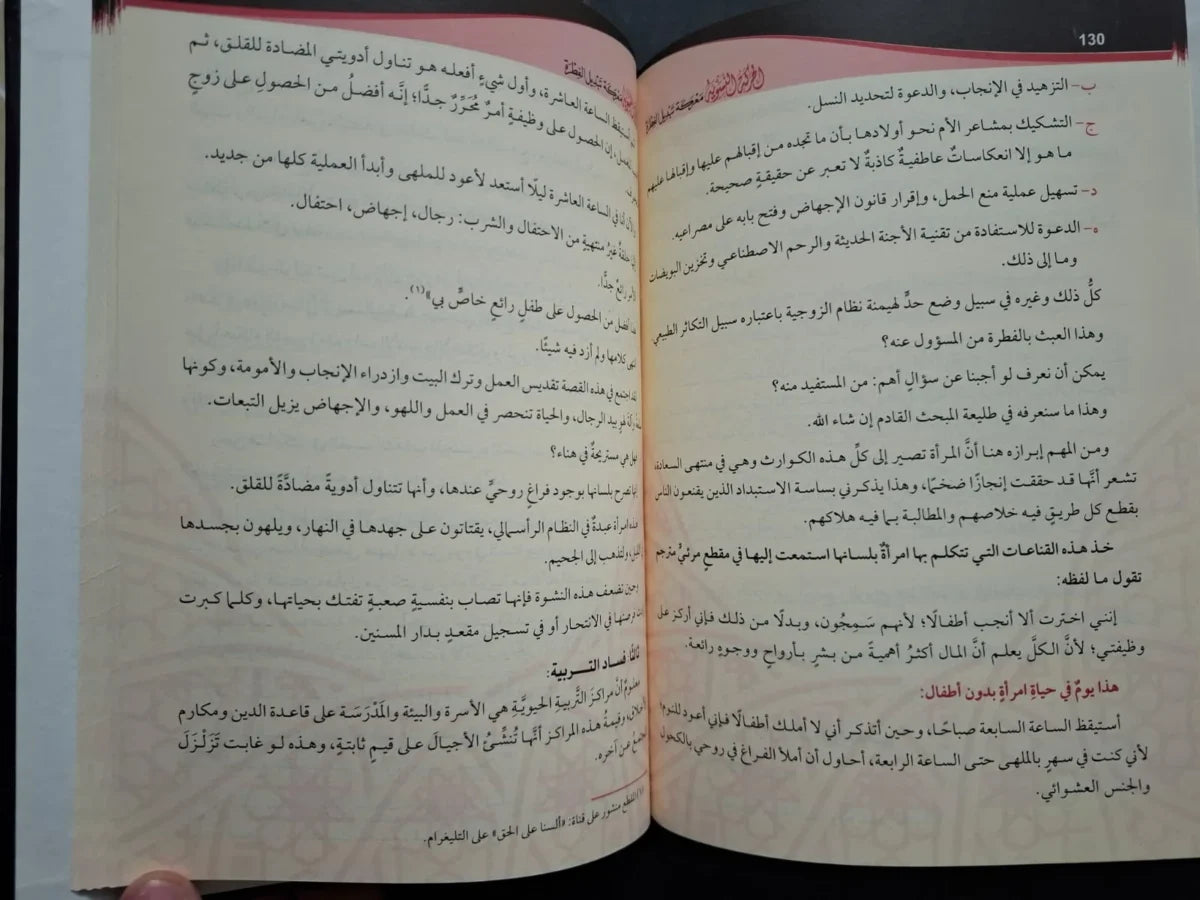 130
الحركة النسوية معركة تبديل الفطرة
ب- التزهيد في الإنجاب، والدعوة لتحديد النسل.
ج- التشكيك بمشاعر الأم نحو أولادها بأن ما تجده من إقبالهم عليها وإقبالها عليهم
ما هو إلا انعكاساتٌ عاطفيةٌ كاذبةٌ لا تعبر عن حقيقةٍ صحيحة.
د- تسهيل عملية منع الحمل، وإقرار قانون الإجهاض وفتح بابه على مصراعيه.
ه- الدعوة للاستفادة من تقنية الأجنة الحديثة والرحم الاصطناعي وتخزين البويضات
وما إلى ذلك.
كلُّ ذلك وغيره في سبيل وضع حدٍّ لهيمنة نظام الزوجية باعتباره سبيل التكاثر الطبيعي
وهذا العبث بالفطرة من المسؤول عنه؟
يمكن أن نعرف لو أجبنا عن سؤالٍ أهم: من المستفيد منه؟
وهذا ما سنعرفه في طليعة المبحث القادم إن شاء الله.
ومن المهم إبرازه هنا أنَّ المرأة تصير إلى كلِّ هذه الكوارث وهي في منتهى السعادة،
تشعر أنَّها قد حققت إنجازًا ضخمًا، وهذا يذكرني بساسة الاستبداد الذين يقنعون الناس
بقطع كل طريقٍ فيه خلاصهم والمطالبة بما فيه هلاكهم.
خذ هذه القناعات التي تتكلم بها امرأةٌ بلسانها استمعت إليها في مقطعٍ مرئيٍّ مترجم
تقول ما لفظه:
إنني اخترت ألا أنجب أطفالًا؛ لأنهم سَمِجُون، وبدلًا من ذلك فإني أركز على
وظيفتي؛ لأنَّ الكلَّ يعلم أنَّ المال أكثرُ أهميةً من بشرٍ بأرواحٍ ووجوهٍ رائعة.
هذا يومٌ في حياةِ امرأةٍ بدون أطفال:
أستيقظ الساعة السابعة صباحًا، وحين أتذكر أني لا أملك أطفالًا فإني أعود للنوم؛
لأني كنت في سهرٍ بالملهى حتى الساعة الرابعة، أحاول أن أملأ الفراغ في روحي بالكحول
والجنس العشوائي.
معركة تبديل الفطرة
أستيقظ الساعة العاشرة، وأول شيءٍ أفعله هو تناول أدويتي المضادة للقلق، ثم
إن الحصول على وظيفةٍ أمرٌ مُحَرِّرٌ جدًّا؛ إنَّه أفضلُ من الحصولِ على زوجٍ
في الساعة العاشرة ليلًا أستعد لأعود للملهى وأبدأ العملية كلها من جديد.
حلقةٌ غيرُ منتهيةٍ من الاحتفال والشرب: رجال، إجهاض، احتفال.
رائعٌ جدًّا.
أفضل من الحصول على طفلٍ رائعٍ خاصٍّ بي»(١).
كلامها ولم أزد فيه شيئًا.
اجتمع في هذه القصة تقديس العمل وترك البيت وازدراء الإنجاب والأمومة، وكونها
بيد الرجال، والحياة تنحصر في العمل واللهو، والإجهاض يزيل التبعات.
هي مستريحةٌ في هناء؟
تصرح بلسانها بوجود فراغٍ روحيٍّ عندها، وأنها تتناول أدويةً مضادَّةً للقلق.
امرأة عبدةٌ في النظام الرأسمالي، يقتاتون على جهدها في النهار، ويلهون بجسدها
ولتذهب إلى الجحيم.
وحين تضعف هذه النشوة فإنها تصاب بنفسيةٍ صعبةٍ تفتك بحياتها، وكلما كبرت
في الانتحار أو في تسجيل مقعدٍ بدار المسنين.
ثالثًا فساد التربية:
معلومٌ أنَّ مراكزَ التَّربيةِ الحيويَّةِ هي الأسرة والبيئة والمَدْرَسَة على قاعدة الدين ومكارم
وقيمةُ هذه المراكز أنَّها تُنشِّئُ الأجيالَ على قيمٍ ثابتةٍ، وهذه لو غابت تَزَلْزَلَ
عن آخره.
المقطع منشور على قناة: «ألسنا على الحق» على التليغرام.